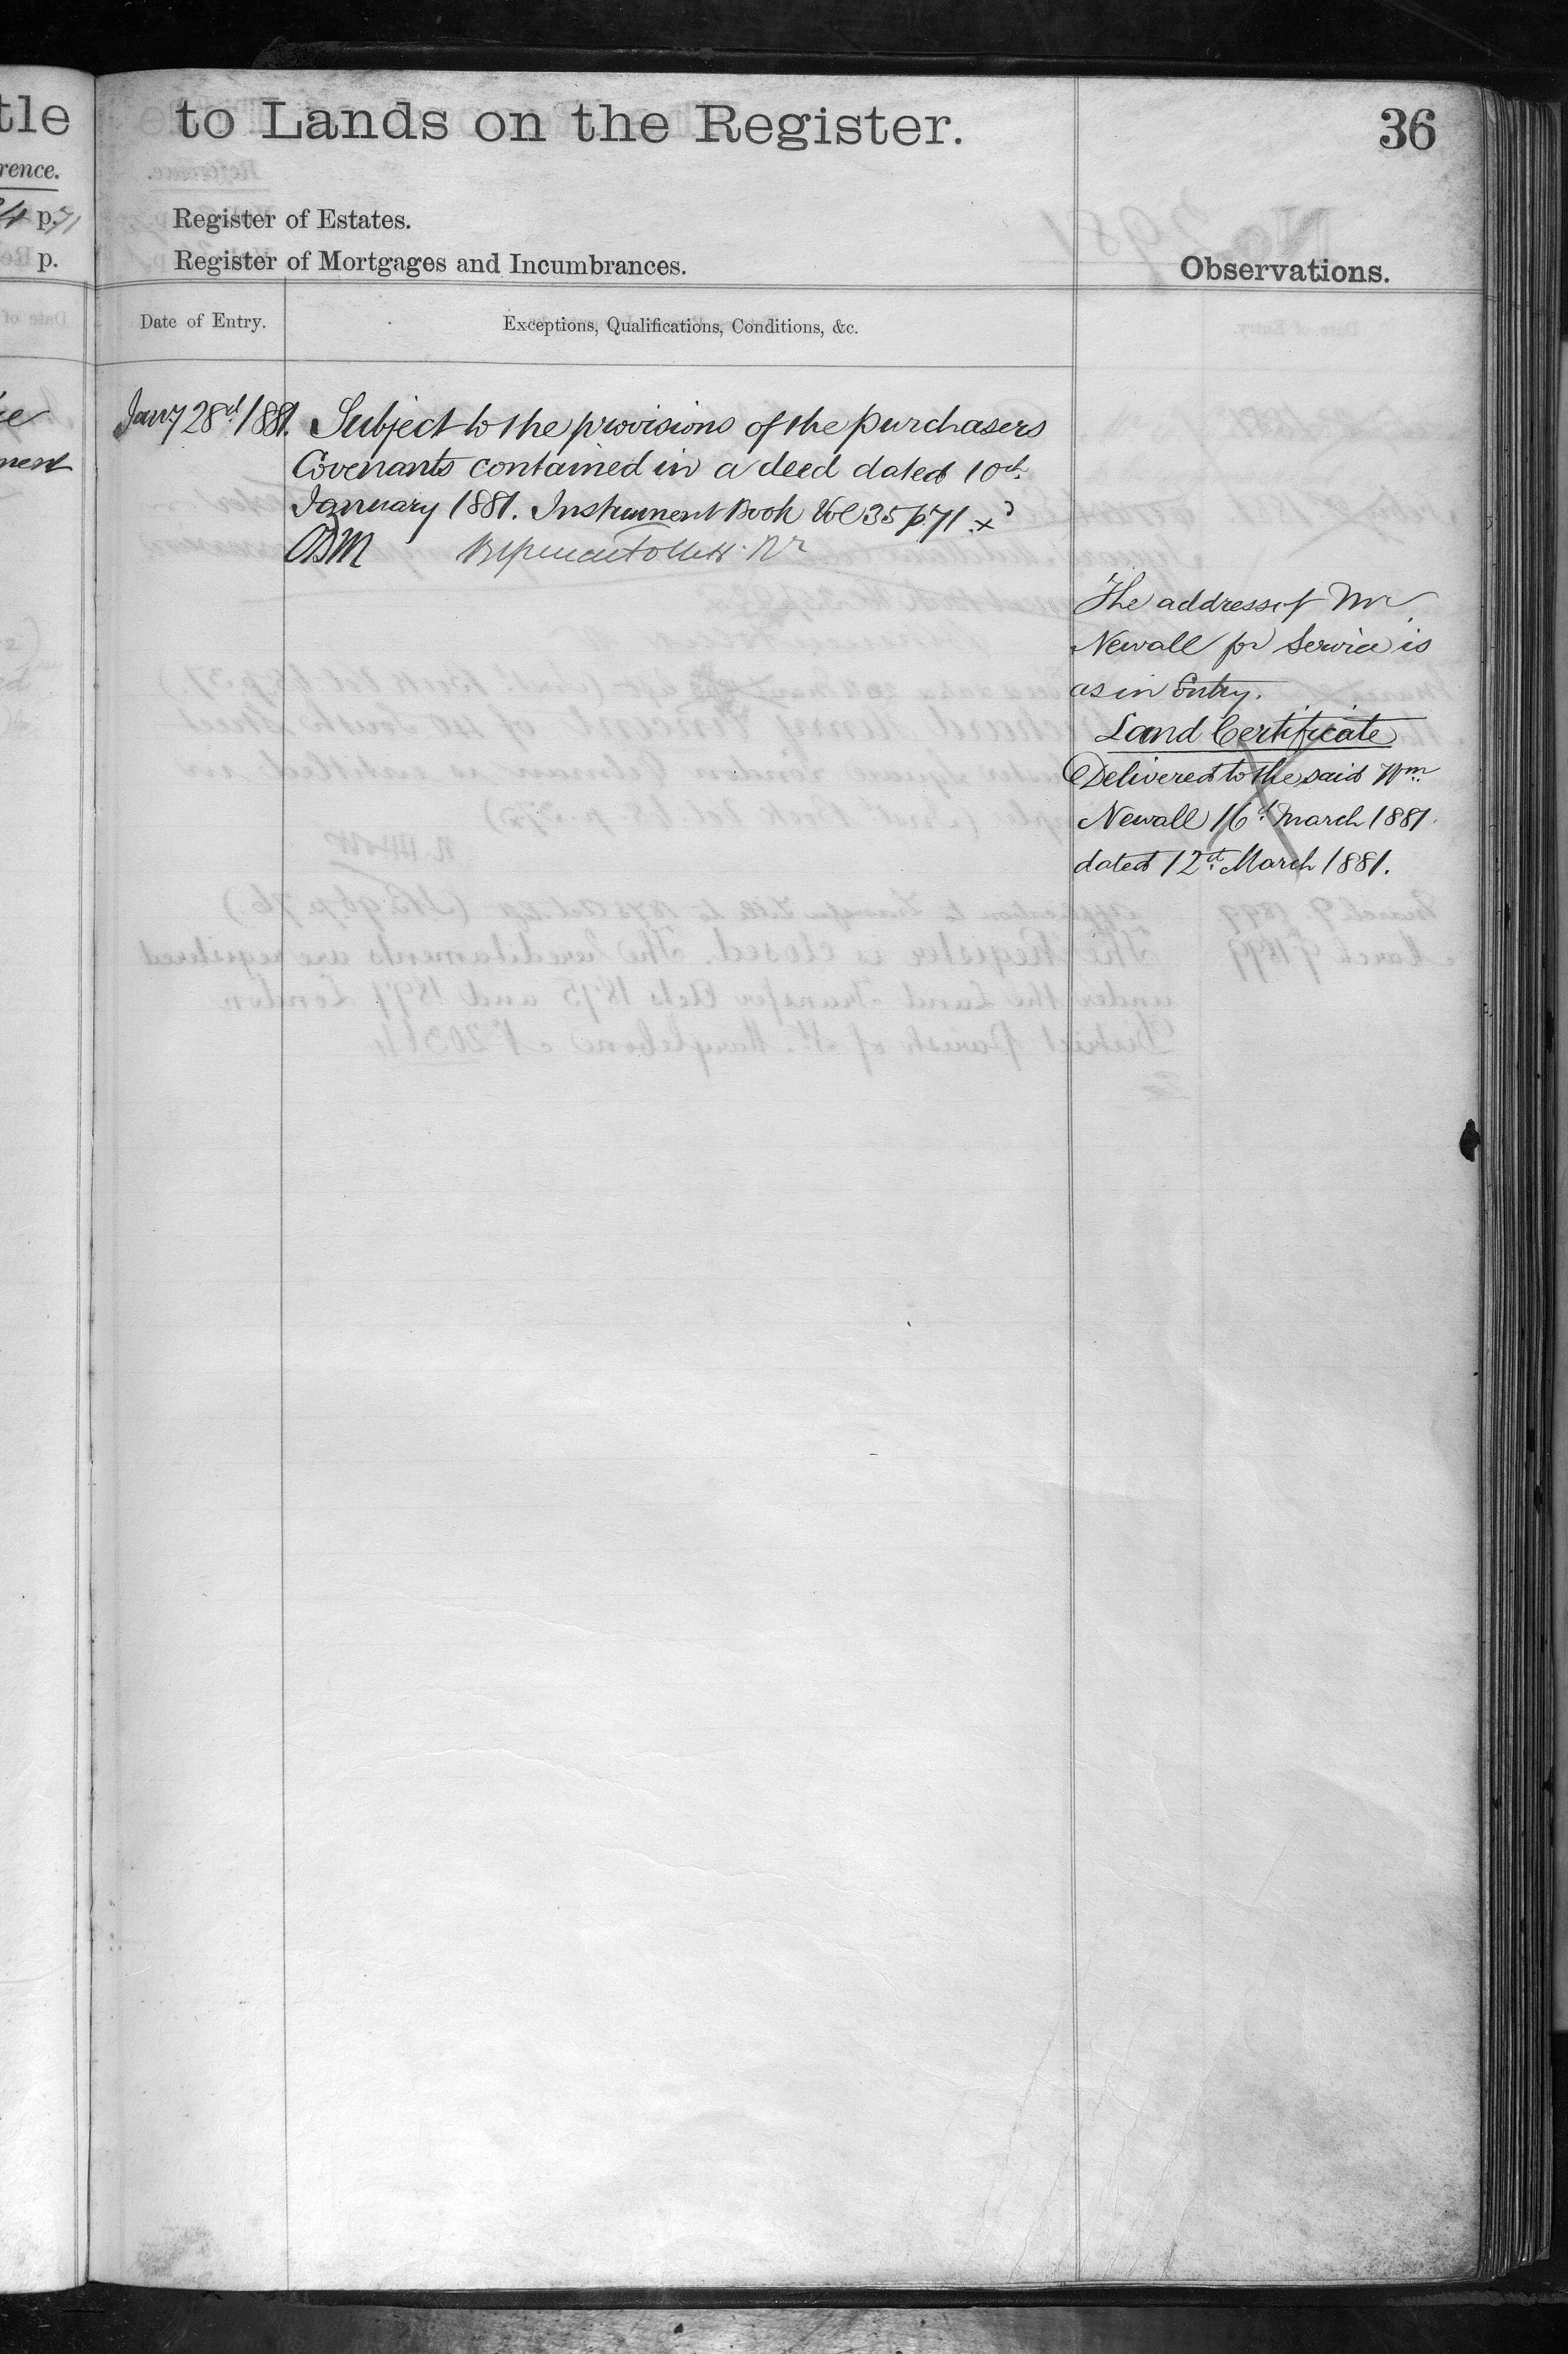 tle
to Lands on the Register.
36
rence.
p. 71
Register of Estates.
p.
Register of Mortgages and Incumbrances.
Observations.
Date of Entry.
Exceptions, Qualifications, Conditions, &c.
Jany 28th 1881.
Subject to the provisions of the purchasers
Covenants contained in a deed dated 10th
January 1881. Instrument Book Vol 35 p. 71. x
The address of Mr
Newall for Service is
as in Entry.
Land Certificate
Delivered to the said Wm
Newall 16th March 1881.
dated 12th March 1881.